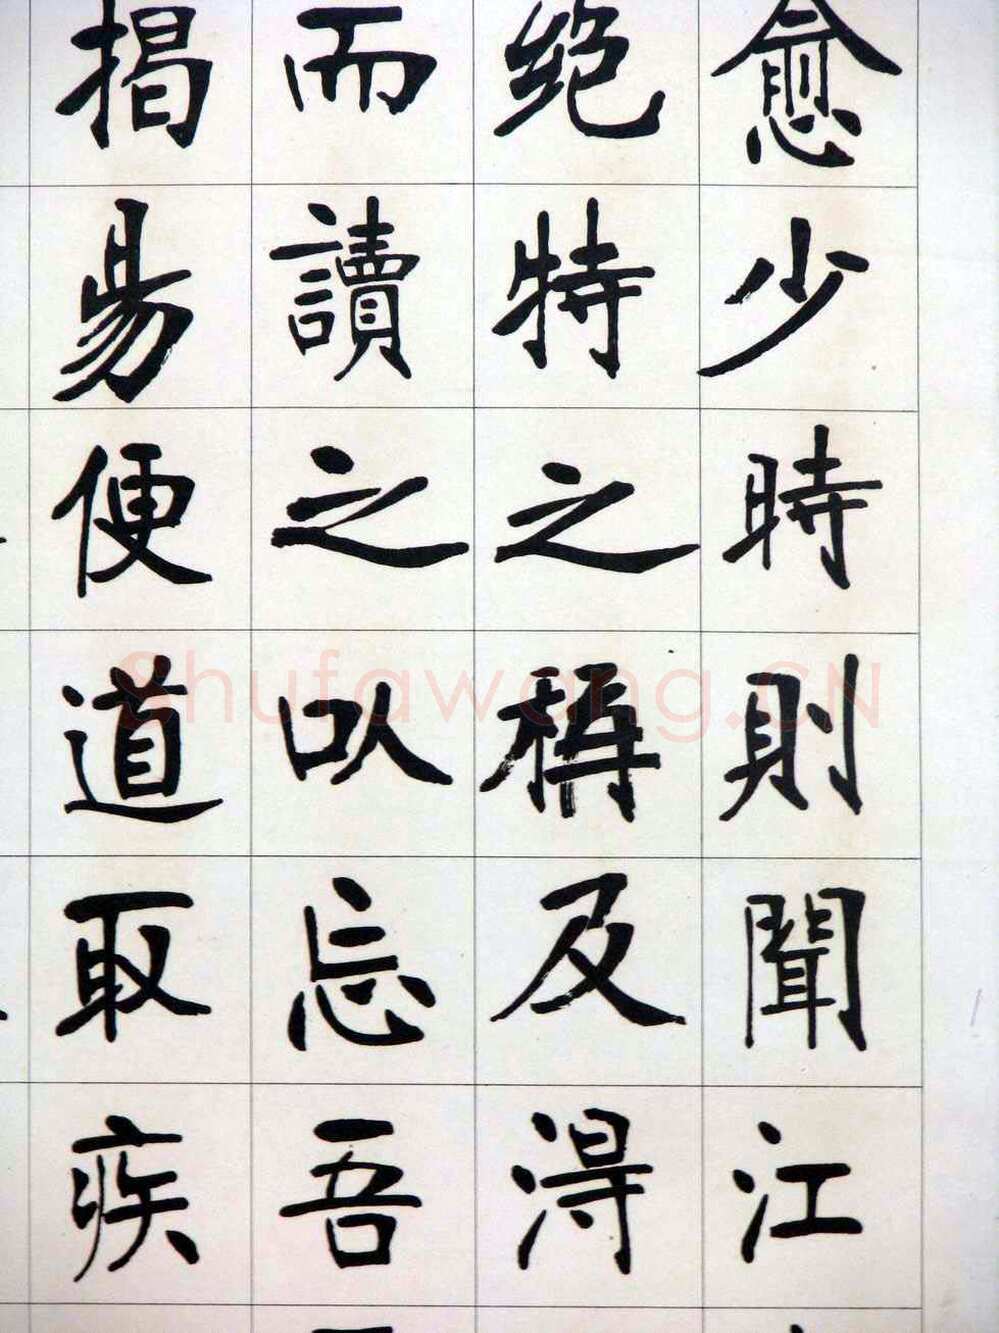 愈少時則聞江
絕特之稱及得
而讀之以忘吾
揭昜便道取疾
Shufawang.CN